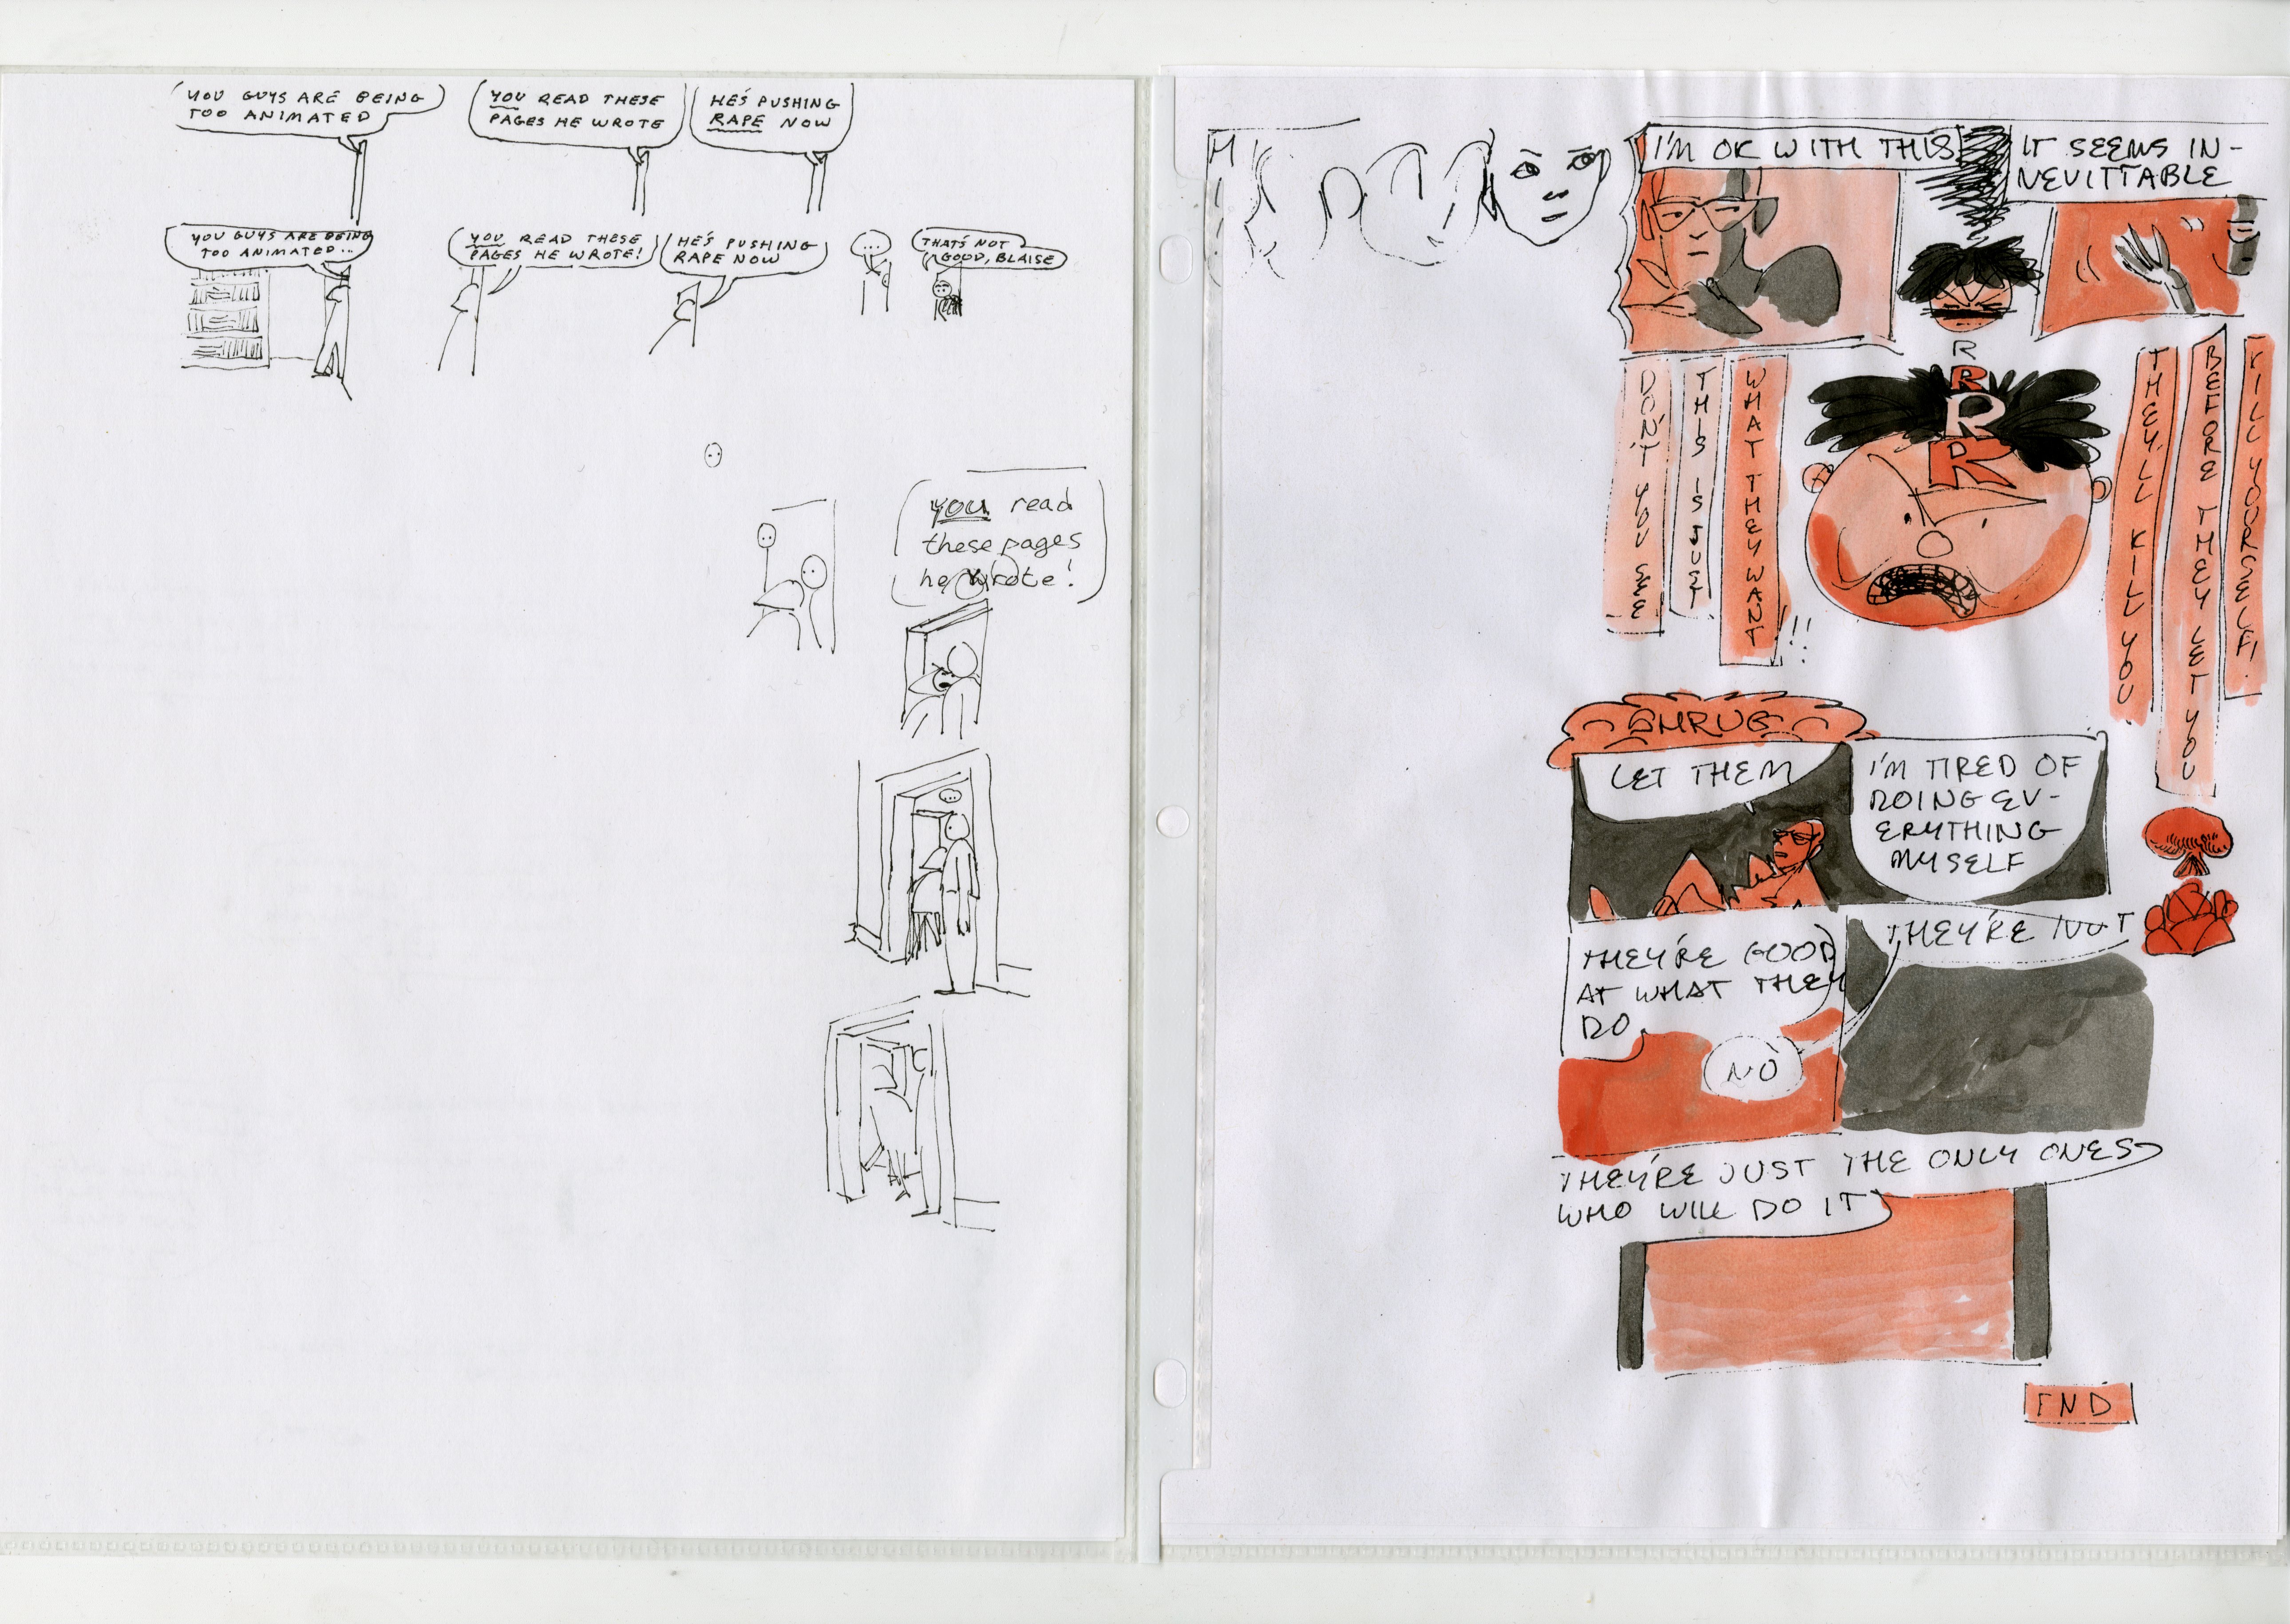 YOU GUYS ARE BEING
TOO ANIMATED
YOU READ THESE
PAGES HE WROTE
HE'S PUSHING
RAPE NOW
YOU GUYS ARE BEING
TOO ANIMATED..
YOU READ THESE
PAGES HE WROTE!
HE'S PUSHING
RAPE NOW
...
THAT'S NOT
GOOD, BLAISE
you read
these pages
he wrote!
...
I'M OK WITH THIS
IT SEEMS IN-
NEVITTABLE
R
R
R
R
DON'T YOU SEE
THIS IS JUST
WHAT THEY WANT
!!
THEY'LL KILL YOU
BEFORE THEY LET YOU
KILL YOURSELF!
SHRUG
LET THEM
I'M TIRED OF
DOING EV-
ERYTHING
MYSELF
THEY'RE GOOD
AT WHAT THEY
DO
THEY'RE NOT
NO
THEY'RE JUST THE ONLY ONES
WHO WILL DO IT
END